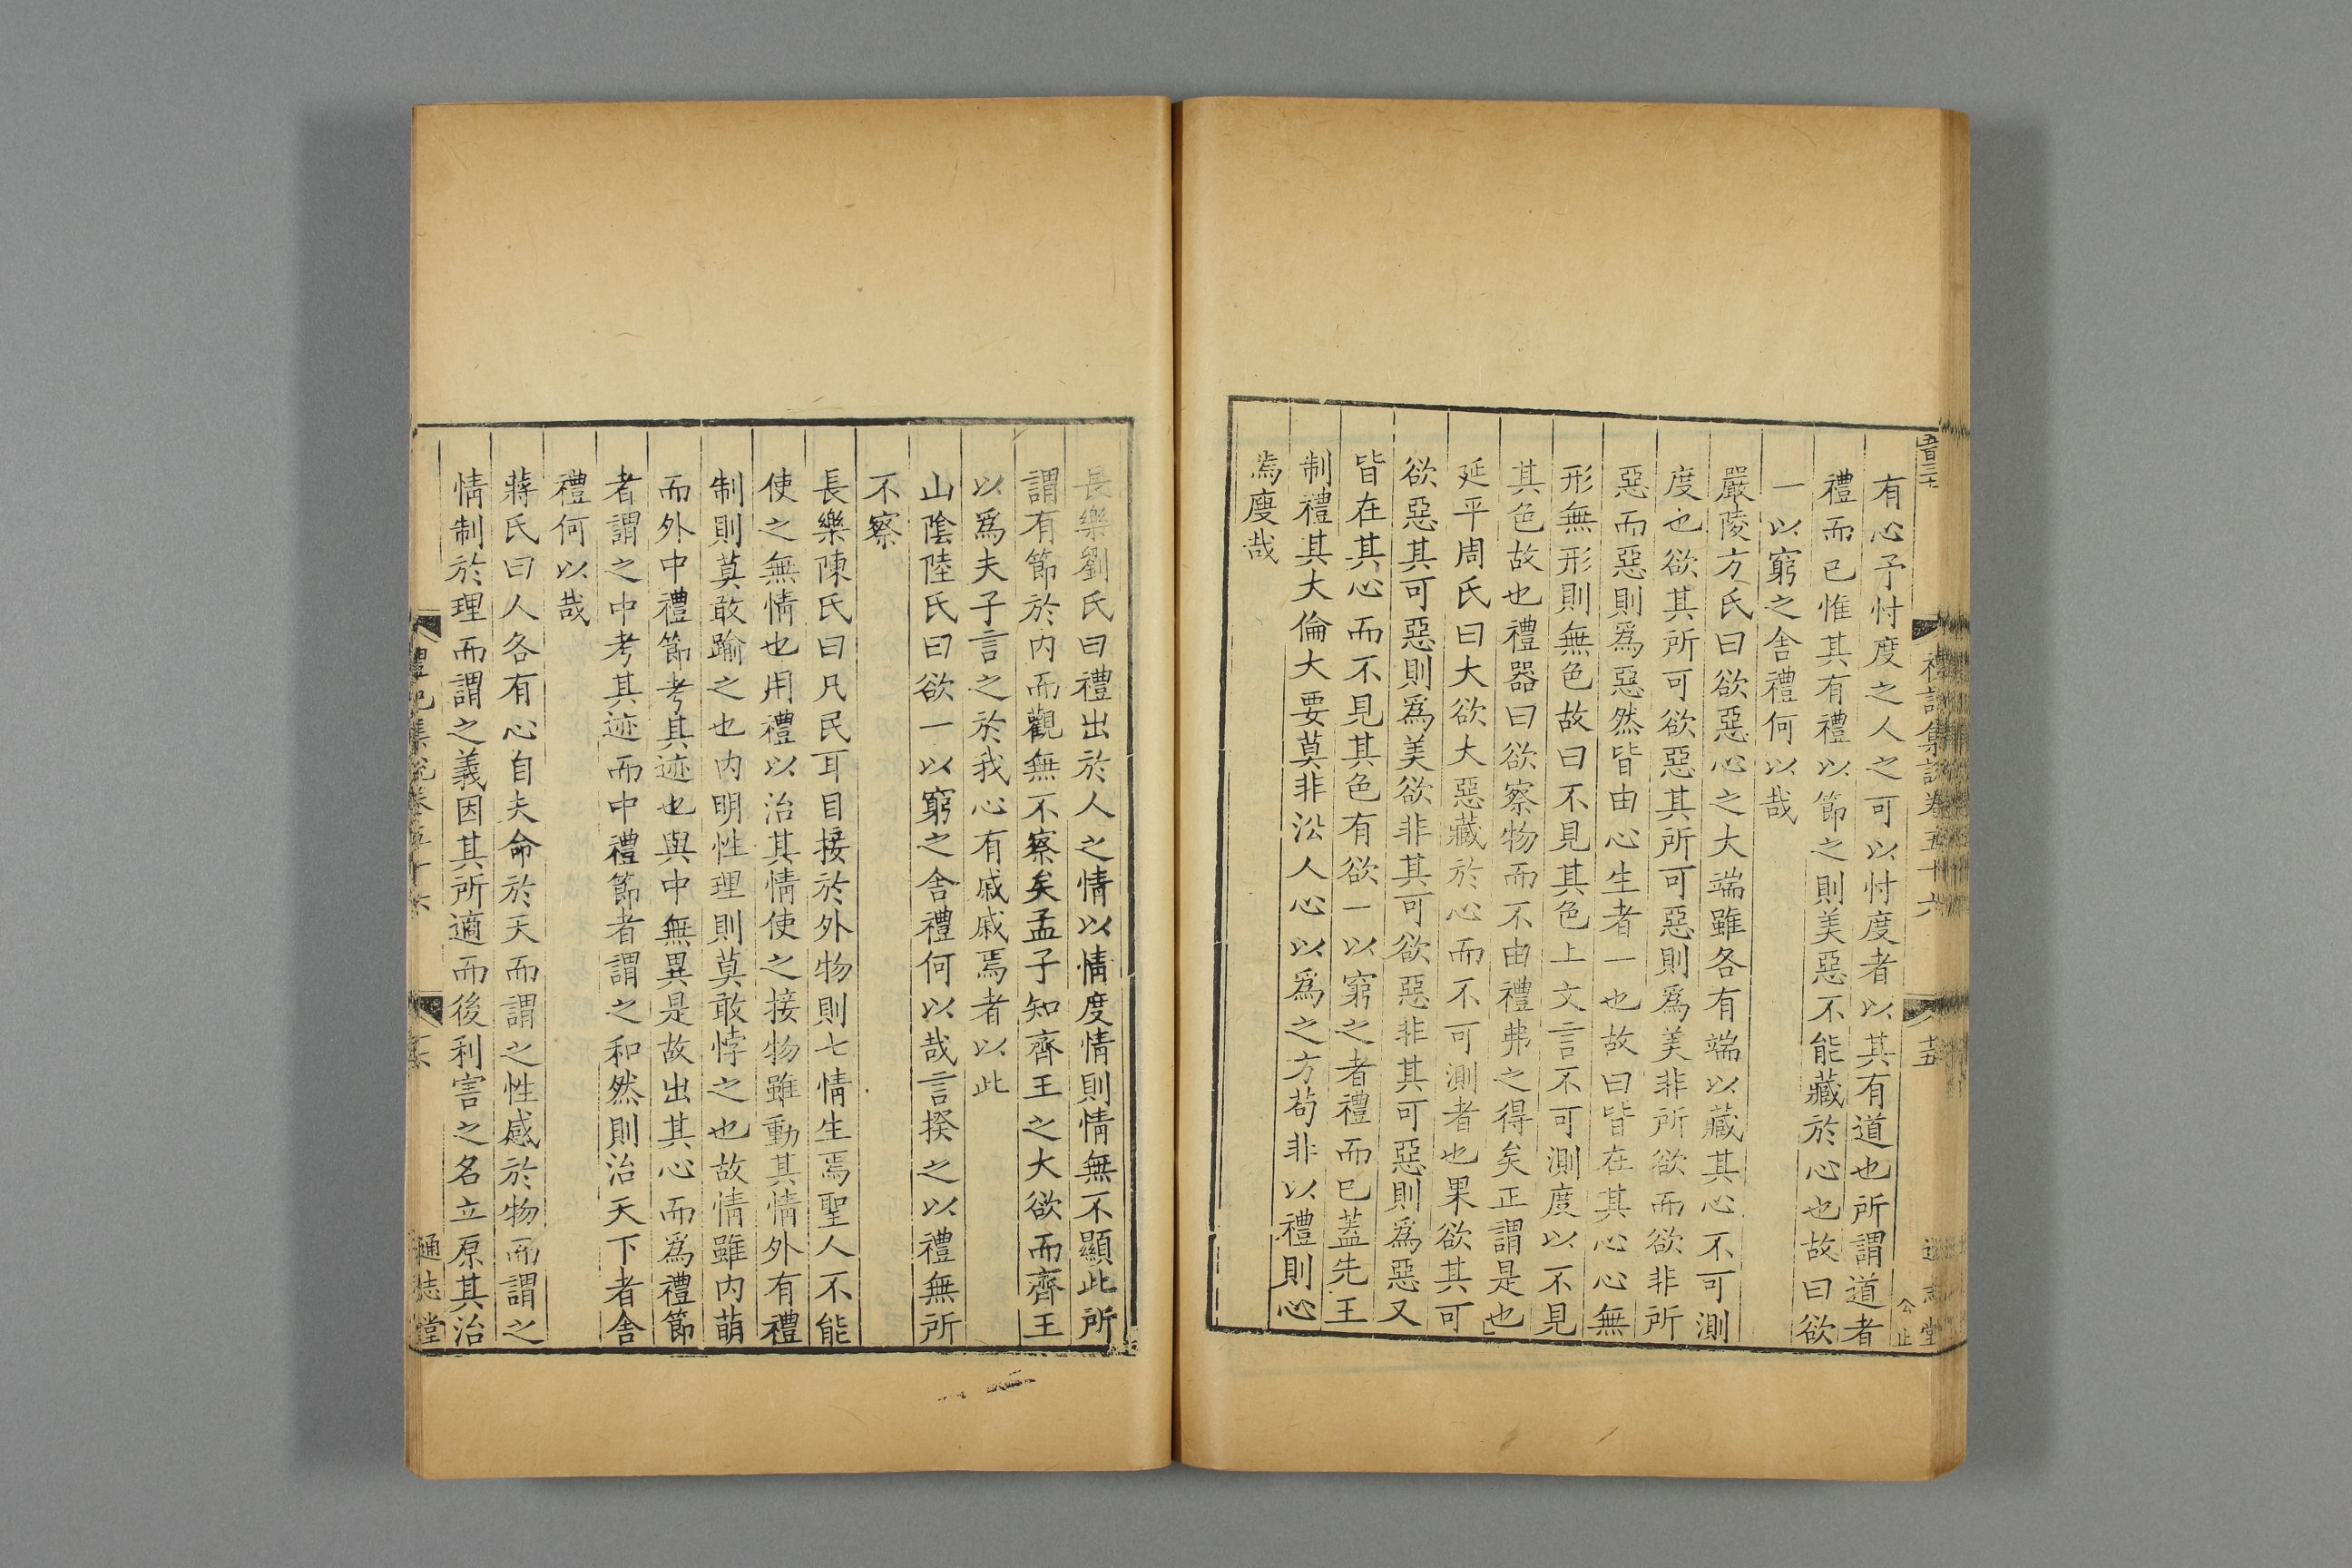 五百三十
禮記集説卷五十六
十五
通志堂
公止
有心予忖度之人之可以忖度者以其有道也所謂道者
禮而已惟其有禮以節之則美惡不能藏於心也故曰欲
一以窮之舍禮何以哉
嚴陵方氏曰欲惡心之大端雖各有端以藏其心不可測
度也欲其所可欲惡其所可惡則爲美非所欲而欲非所
惡而惡則爲惡然皆由心生者一也故曰皆在其心心無
形無形則無色故曰不見其色上文言不可測度以不見
其色故也禮器曰欲察物而不由禮弗之得矣正謂是也
延平周氏曰大欲大惡藏於心而不可測者也果欲其可
欲惡其可惡則爲美欲非其可欲惡非其可惡則爲惡又
皆在其心而不見其色有欲一以窮之者禮而已蓋先王
制禮其大倫大要莫非㳂人心以爲之方苟非以禮則心
焉廋哉
長樂劉氏曰禮出於人之情以情度情則情無不顯此所
謂有節於内而觀無不察矣孟子知齊王之大欲而齊王
以爲夫子言之於我心有戚戚焉者以此
山陰陸氏曰欲一以窮之舍禮何以哉言揆之以禮無所
不察
長樂陳氏曰凡民耳目接於外物則七情生焉聖人不能
使之無情也用禮以治其情使之接物雖動其情外有禮
制則莫敢踰之也内明性理則莫敢悖之也故情雖内萌
而外中禮節考其迹也與中無異是故出其心而爲禮節
者謂之中考其迹而中禮節者謂之和然則治天下者舍
禮何以哉
蔣氏曰人各有心自夫命於天而謂之性感於物而謂之
情制於理而謂之義因其所適而後利害之名立原其治
禮記集説卷五十六
通志堂